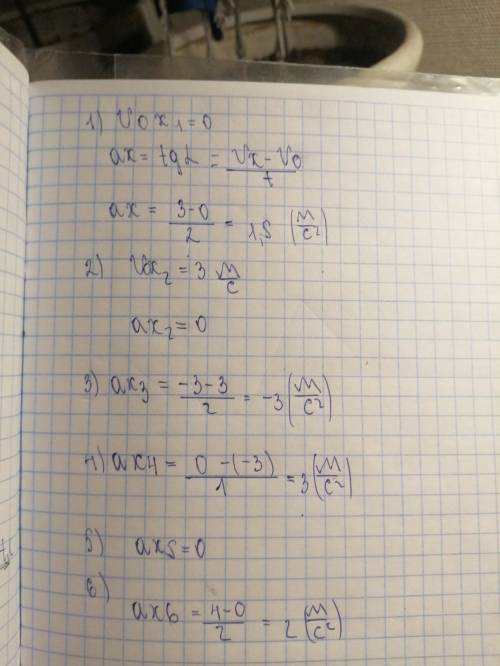 1) V0x₁=0
ax = tgα = (Vx-V0)/t
ax = (3-0)/2 = 1,5 (м/с²)
2) V0x₂ = 3 м/с
ax₂=0
3) ax₃ = (-3-3)/2 = -3 (м/с²)
4) ax₄ = (0-(-3))/1 = 3 (м/с²)
5) ax₅=0
6)
ax₆ = (4-0)/2 = 2 (м/с²)